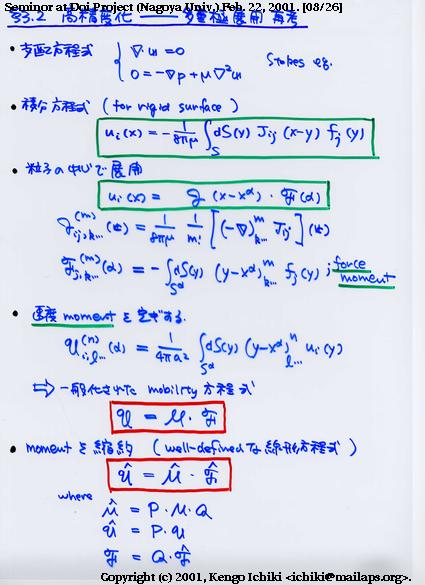 Seminar at Doi Project (Nagoya Univ.) Feb. 22, 2001. [08/26]
§3.2 高精度化 —— 多重極展開 再考
• 支配方程式 { ∇·u = 0
0 = -∇p + μ∇²u Stokes eq.
• 積分方程式 ( for rigid surface )
u_i(x) = - 1/8πμ ∫_S dS(y) J_ij (x-y) f_j (y)
• 粒子の中心で展開
u_i(x) = 𝒥 (x-x^α) · ℱ(α)
𝒥^(m)_ij,k...(x) = 1/8πμ 1/m! [(-∇)^m_k... J_ij](x)
ℱ^(m)_j,k...(α) = - ∫_S^α dS(y) (y-x^α)^m_k... f_j(y) ; force moment
• 速度 moment を定ギする.
𝒰^(n)_i,l...(α) = 1/4πa² ∫_S^α dS(y) (y-x^α)^n_l... u_i(y)
⇨ 一般化された mobility 方程式
𝒰 = ℳ · ℱ
• moment を縮約 ( well-defined な 線形方程式 )
𝒰̂ = ℳ̂ · ℱ̂
where
ℳ̂ = P · ℳ · Q
𝒰̂ = P · 𝒰
ℱ = Q · ℱ̂
Copyright (c) 2001, Kengo Ichiki <ichiki@mailaps.org>.